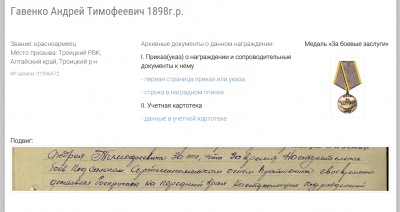 Гавенко Андрей Тимофеевич 1898г.р.
Звание: красноармеец
Место призыва: Троицкий РВК,
Алтайский край, Троицкий р-н
№ записи: 31996472
Архивные документы о данном награждении:
I. Приказ(указ) о награждении и сопроводительные
документы к нему
- первая страница приказ или указа
- строка в наградном списке
II. Учетная картотека
- данные в учетной картотеке
Медаль «За боевые заслуги»
Подвиг:
Андрея Тимофеевича За то, что Во время Наступательных
боев под сильным огнем Противника своевременно
доставлял боеприпасы На передний край Наступающих подразделений